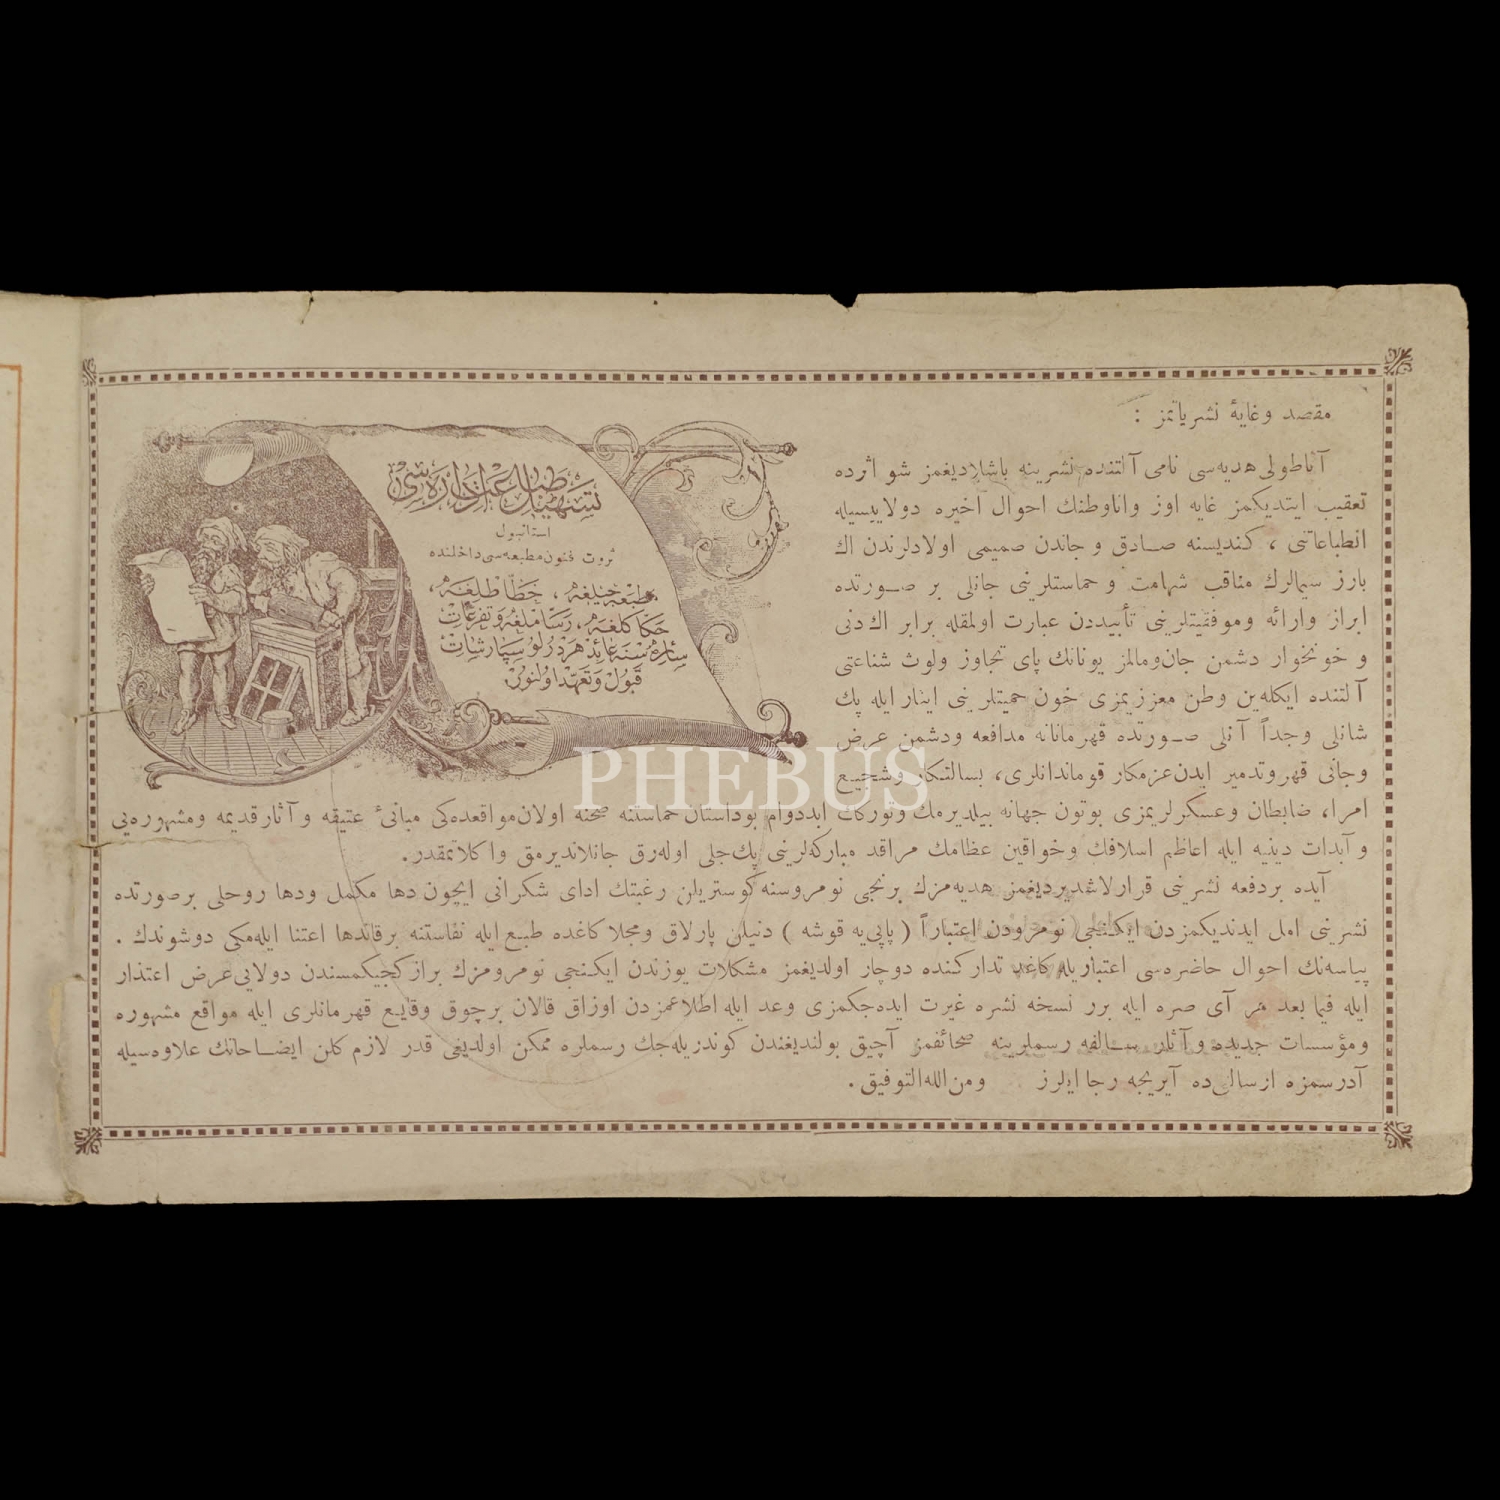 مقصد و غایهٔ نشریاتمز :
آناطولی هدیه‌سی نامی آلتنده نشرینه باشلادیغمز شو اثرده
تعقیب ایتدیکمز غایه اوز واناوطنك احوال اخیره دولاییسیله
انطباعاتی ، کندیسنه صادق و جاندن صمیمی اولادلرندن اك
بارز سیمالرك مناقب شهامت و حماستلرینی جانلی بر صورتده
ابراز وارائه وموفقیتلرینی تأییددن عبارت اولمقله برابر اك دنی
و خونخوار دشمن جان‌ومالمز یونانك پای تجاوز ولوث شناعتی
آلتنده ایکله‌ین وطن معززیمزی خون حمیتلرینی ایثار ایله پك
شانلی وجداً آنلی صورتده قهرمانانه مدافعه ودشمن عرض
وجانی قهر وتدمیر ایدن عزمکار قوماندانلری، بسالتکار وشجیع
امرا، ضابطان وعسکرلریمزی بوتون جهانه بیلدیرمك وتورکك ابددوام بوداستان حماستنه صحنه اولان مواقعده‌کی مبانیٔ عتیقه و آثارقدیمه ومشهوره‌یی
و آبدات دینیه ایله اعاظم اسلافك وخواقین عظامك مراقد مبارکه‌لرینی پك‌جلی اوله‌رق جانلاندیرمق واکلاتمقدر.
آیده بردفعه نشرینی قرارلاشدیردیغمز هدیه‌مزك برنجی نومروسنه کوستریلن رغبتك ادای شکرانی ایچون دها مکمل ودها روحلی برصورتده
نشرینی امل ایدندیکمزدن ایکنجی نومرودن اعتباراً ( پاپی‌یه قوشه ) دنیلن پارلاق ومجلا کاغده طبع ایله نفاستنه برقاتدها اعتنا ایله‌مکی دوشوندك .
پیاسه‌نك احوال حاضره‌سی اعتباریله کاغد تدارکنده دوچار اولدیغمز مشکلات یوزندن ایکنجی نومرومزك براز کجیکمسندن دولایی عرض اعتذار
ایله فیما بعد هر آی صره ایله برر نسخه نشره غیرت ایده‌جکمزی وعد ایله اطلاعمزدن اوزاق قالان برچوق وقایع قهرمانلری ایله مواقع مشهوره
ومؤسسات جدیده و آثار سالفه رسملرینه صحائفمز آچیق بولندیغندن کوندریله‌جك رسملره ممکن اولدیغی قدر لازم کلن ایضاحاتك علاوه‌سیله
آدرسمزه ارسالی‌ده آیریجه رجا ایلرز ومن‌الله‌التوفیق .
تسهیل طباعت اداره‌سی
استانبول
ثروت فنون مطبعه‌سی داخلنده
طبعه‌جیلغه ، خطاطلغه ،
حکاکلغه ، رساملغه وتفرعات
سائره‌سنه عائد هر درلو سپارشات
قبول وتعهد اولنور.
PHEBUS